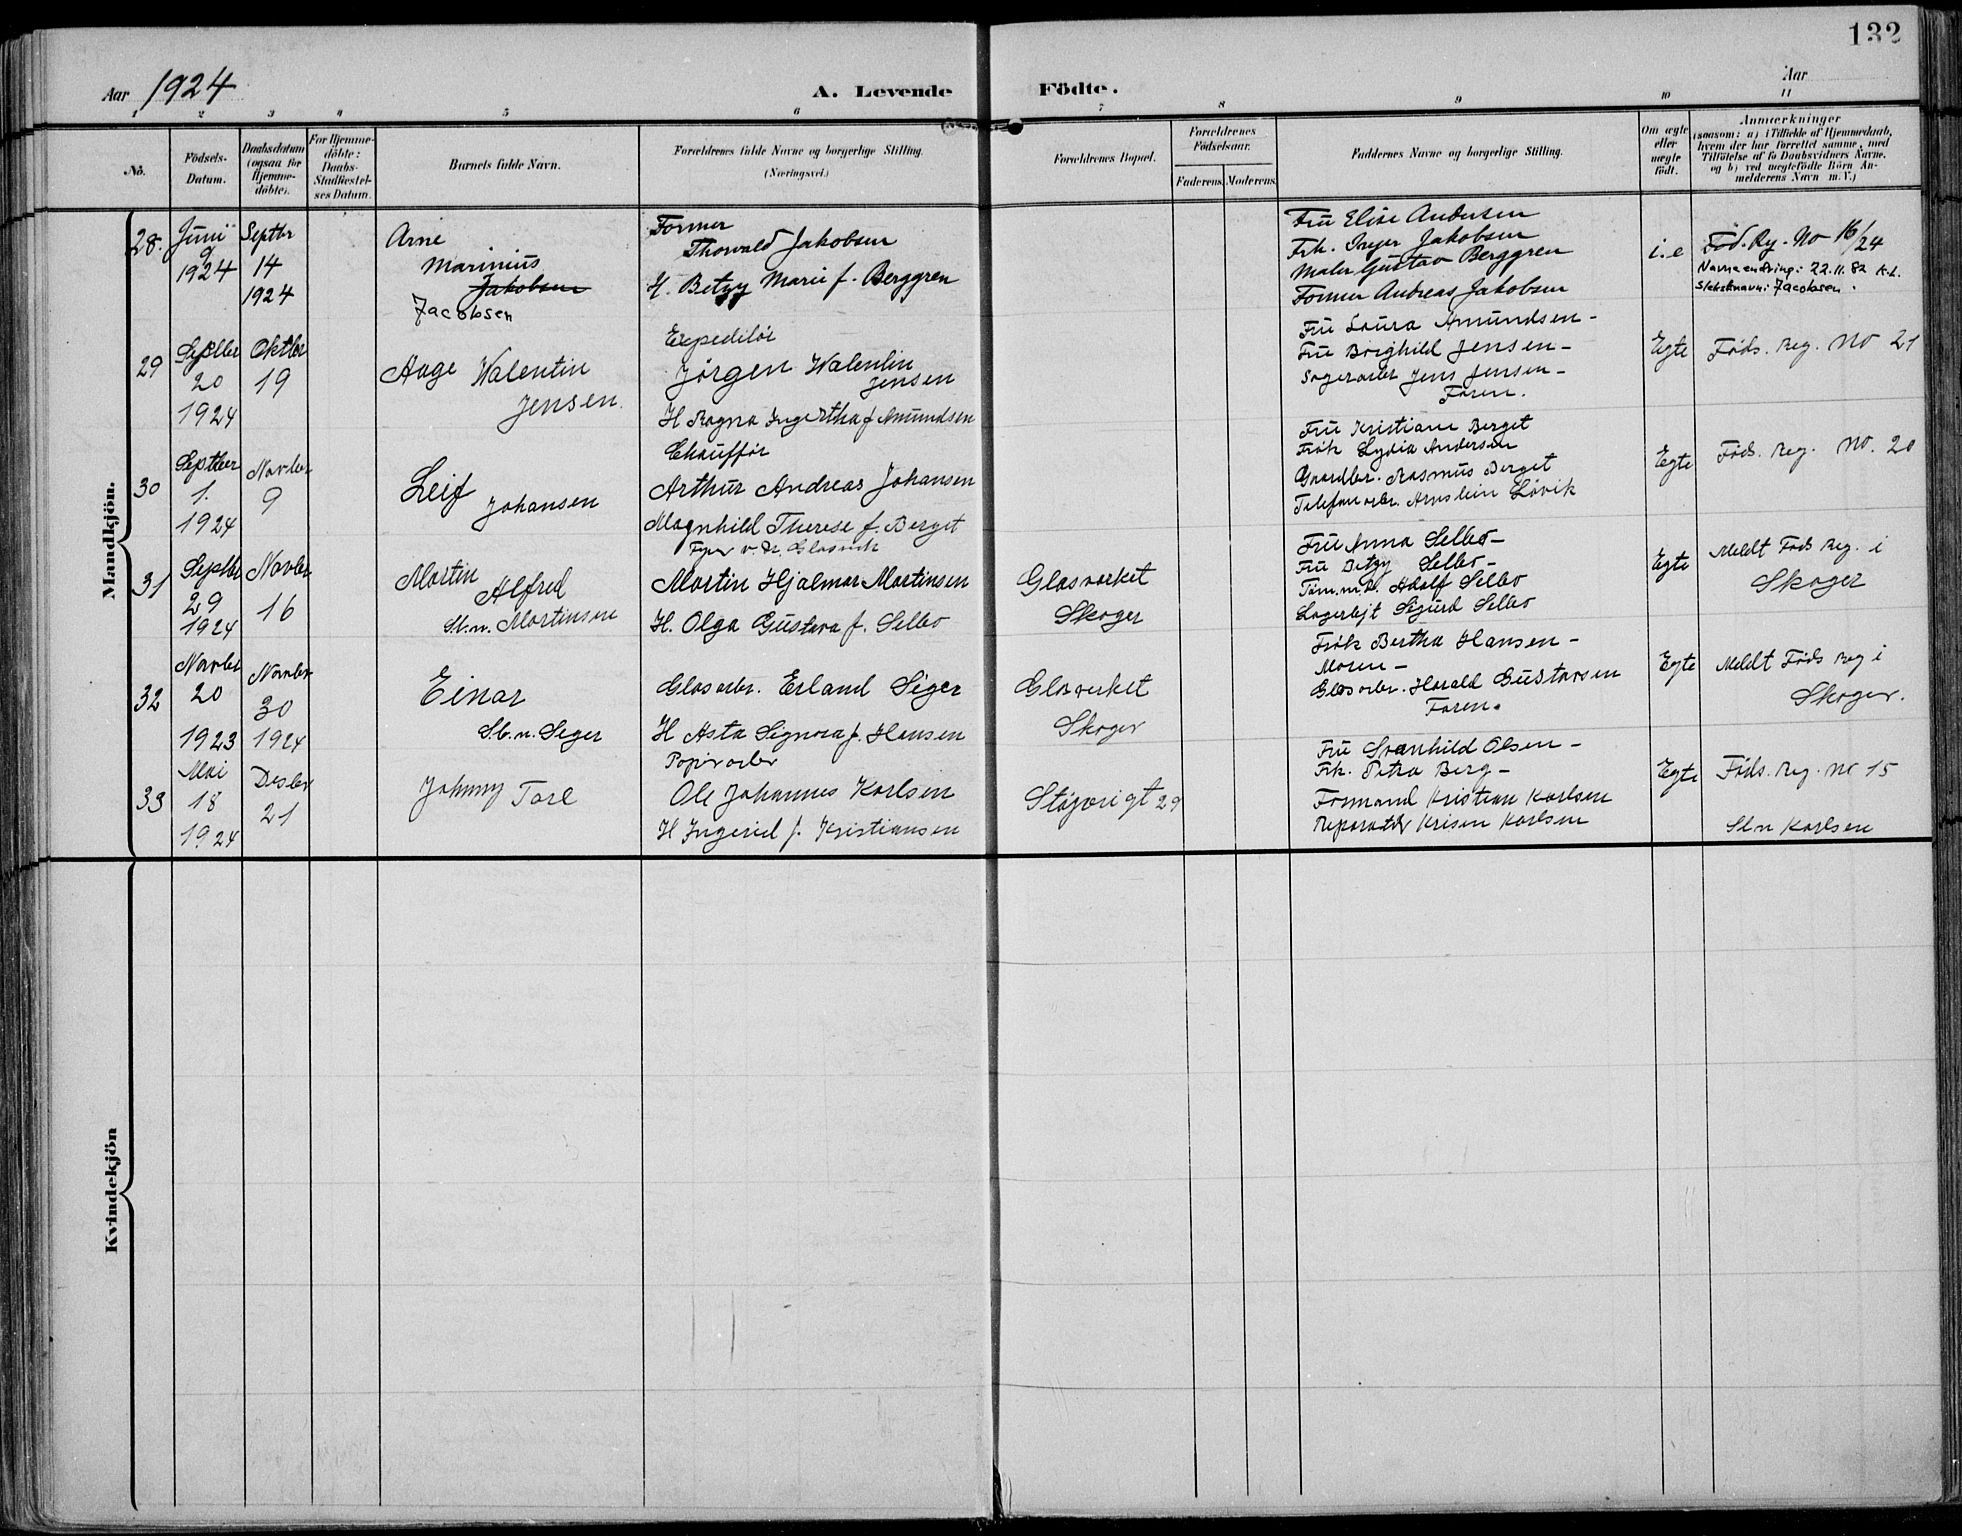 132
Aar 1924
A. Levende Födte.
Aar
1 2 3 4 5 6 7 8 9 10 11
No.
Födsels-Datum.
Daabsdatum (ogsaa for Hjemme-döbte).
For Hjemme-döbte: Daabs-Stadfæstel-ses Datum.
Barnets fulde Navn.
Forældrenes fulde Navne og borgerlige Stilling. (Næringsvei.)
Forældrenes Bopæl.
Forældrenes Födselsaar.
Faderens. Moderens.
Faddernes Navne og borgerlige Stilling.
Om ægte eller uægte födt.
Anmærkninger (saasom: a) i Tilfælde af Hjemmedaab, hvem der har forrettet samme, med Tilföielse af to Daabsvidners Navne, og b) ved uægtefödte Börn An-melderens Navn m. V.)
Mandkjön.
28. Juni 9 1924
Septbr 14 1924
Arne
Marinius
Jakobsen
Jacobsen
Former
Thorvald Jakobsen
H. Betzy Marie f. Berggren
Fru Elise Andersen
Frk. Inger Jakobsen
Maler Gustav Berggren
Former Andreas Jakobsen
i.e
Föd. Rg. No 16/24
Navneendring: 22.11.82 K.L.
Slektsnavn: Jacobsen.
29 Septber 20 1924
Oktber 19
Aage Walentin
Jensen.
Expeditör
Jørgen Walentin
Jensen
H Ragna Ingertha f Amundsen
Fru Laura Amundsen -
Fru Borghild Jensen -
Sagerarber Jens Jensen -
Faren.
Egte
Føds. Reg. No 21
30 Septber 1. 1924
Novber 9
Leif
Johansen
Chauffør
Arthur Andreas Johansen
Magnhild Therese f. Berget
Fru Kristiane Berget
Frøk Lydia Andersen
Gaardbr. Rasmus Berget
Telefonarbr. Arnstein Løvik
Egte
Føds. Reg. No. 20
31 Septbr 29 1924
Novber 16
Martin
Alfred
Sl.n. Martinsen
Martin Hjalmar Martinsen
H. Olga Gustava f. Selbo
Glasverket
Skoger
Fru Anna Selbo -
Fru Betzy Selbo -
Adolf Selbo
Sigurd Selbo
Egte
Meldt Føds Reg. i
Skoger
32 Novber 20 1923
Novber 30 1924
Einar
Sl.n. Seger
Glasarbr. Erland Seger
H Asta Signora f. Hansen
Glasverket
Skoger
Frøk Bertha Hansen -
Moren -
Glasarbr. Harald Gustavsen
Faren.
Egte
Meldt Føds Reg i
Skoger.
33 Mai 18 1924
Desbr 21
Johnny Tore
Papirarbr
Ole Johannes Karlsen
H Ingerid f. Kristiansen
29
Fru Svanhild Olsen -
Frk. Petra Berg -
Formand Kristian Karlsen
Reparatør Karlsen
Egte
Føds. Reg. No 15
Sl.n Karlsen
Kvindekjön